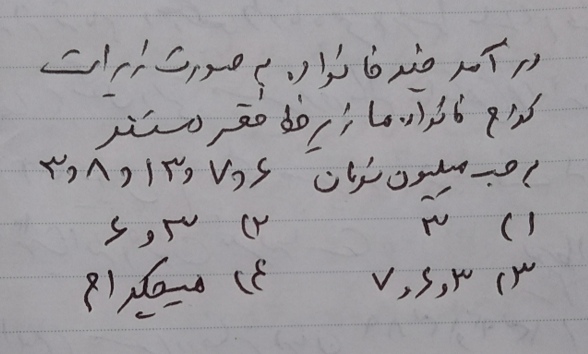 درآمد چند خانواده به صورت زیر است
کدام خانواده‌ها زیر خط فقر هستند
بر حسب میلیون تومان ۶ و ۷ و ۱۳ و ۸ و ۳
۱) ۳ ۲) ۳ و ۶
۳) ۳ و ۶ و ۷ ۴) هیچکدام